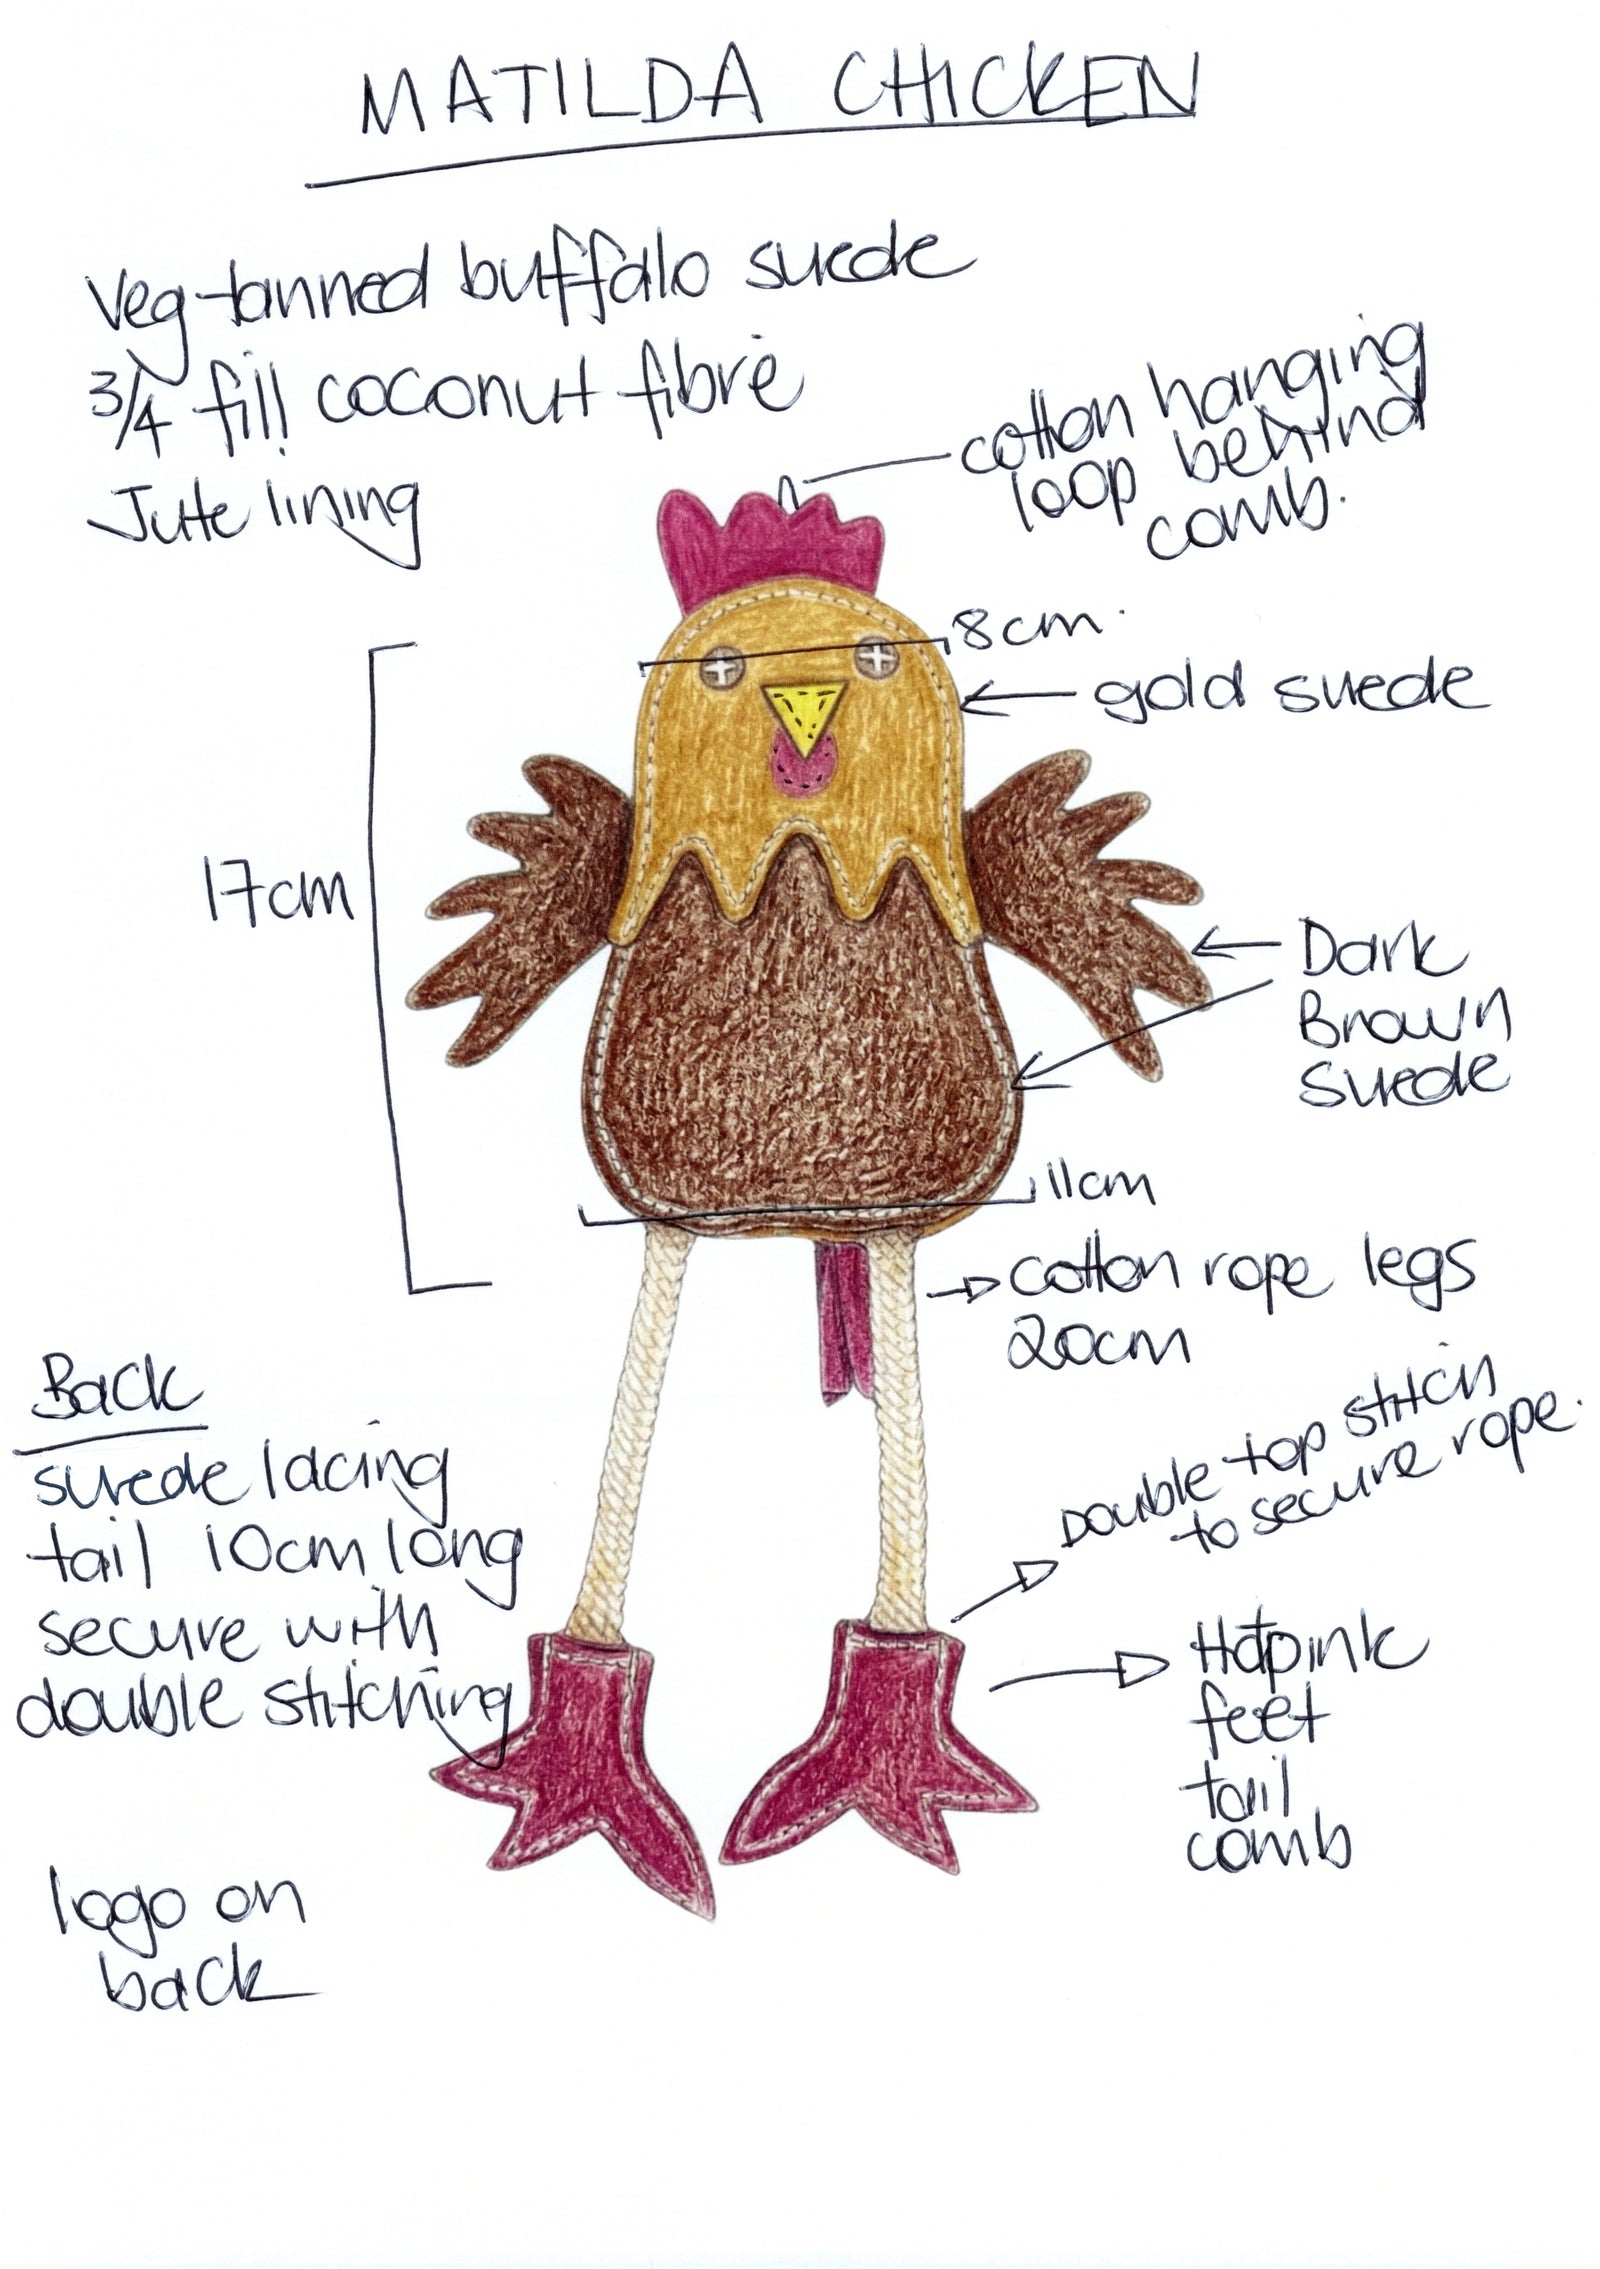 MATILDA CHICKEN
Veg-tanned buffalo suede
3/4 fill coconut fibre
Jute lining
cotton hanging
loop behind
comb.
8cm.
gold suede
17cm
Dark
Brown
Suede
11cm
cotton rope legs
20cm
Back
suede lacing
tail 10cm long
secure with
double stitching
Double top stitch
to secure rope.
Hot pink
feet
tail
comb
logo on
back